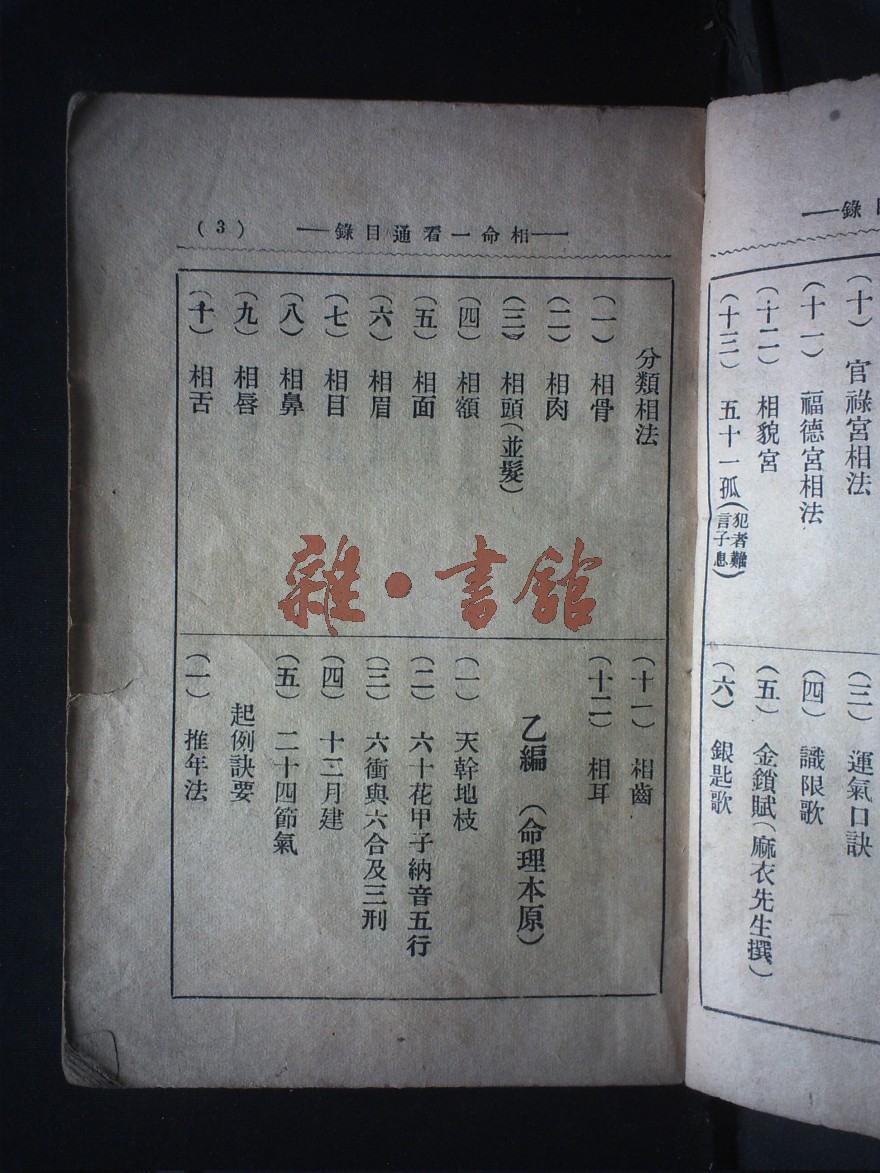 錄——
（十）　官祿宮相法
（十一）　福德宮相法
（十二）　相貌宮
（十三）　五十一孤（犯者難言子息）
（三）　運氣口訣
（四）　識限歌
（五）　金鎖賦（麻衣先生撰）
（六）　銀匙歌
——相命一看通目錄——
（3）
分類相法
（一）　相骨
（二）　相肉
（三）　相頭（並髮）
（四）　相額
（五）　相面
（六）　相眉
（七）　相目
（八）　相鼻
（九）　相唇
（十）　相舌
（十一）　相齒
（十二）　相耳
乙編　（命理本原）
（一）　天幹地枝
（二）　六十花甲子納音五行
（三）　六衝與六合及三刑
（四）　十二月建
（五）　二十四節氣
起例訣要
（一）　推年法
雜·書館